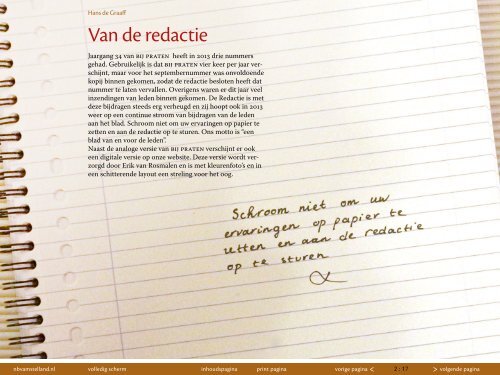 Hans de Graaff
Van de redactie
Jaargang 34 van BIJ PRATEN heeft in 2013 drie nummers
gehad. Gebruikelijk is dat BIJ PRATEN vier keer per jaar ver-
schijnt, maar voor het septembernummer was onvoldoende
kopij binnen gekomen, zodat de redactie besloten heeft dat
nummer te laten vervallen. Overigens waren er dit jaar veel
inzendingen van leden binnen gekomen. De Redactie is met
deze bijdragen steeds erg verheugd en zij hoopt ook in 2013
weer op een continue stroom van bijdragen van de leden
aan het blad. Schroom niet om uw ervaringen op papier te
zetten en aan de redactie op te sturen. Ons motto is “een
blad van en voor de leden”.
Naast de analoge versie van BIJ PRATEN verschijnt er ook
een digitale versie op onze website. Deze versie wordt ver-
zorgd door Erik van Rosmalen en is met kleurenfoto’s en in
een schitterende layout een streling voor het oog.
Schroom niet om uw
ervaringen op papier te
zetten en aan de redactie
op te sturen
nbvamsselland.nl volledig scherm inhoudspagina print pagina vorige pagina < 2 : 17 > volgende pagina